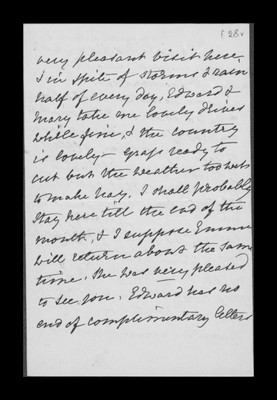 f 28v
very pleasant visit here
& in spite of storms & rain
half of every day, Edward &
Mary take me lovely drives
while fine, & the country
is lovely - grass ready to
cut but the weather too wet
to make hay. I shall probably
stay here till the end of the
month, & I suppose Emma
will return about the same
time. She was very pleased
to see you. Edward has no
end of complimentary letters